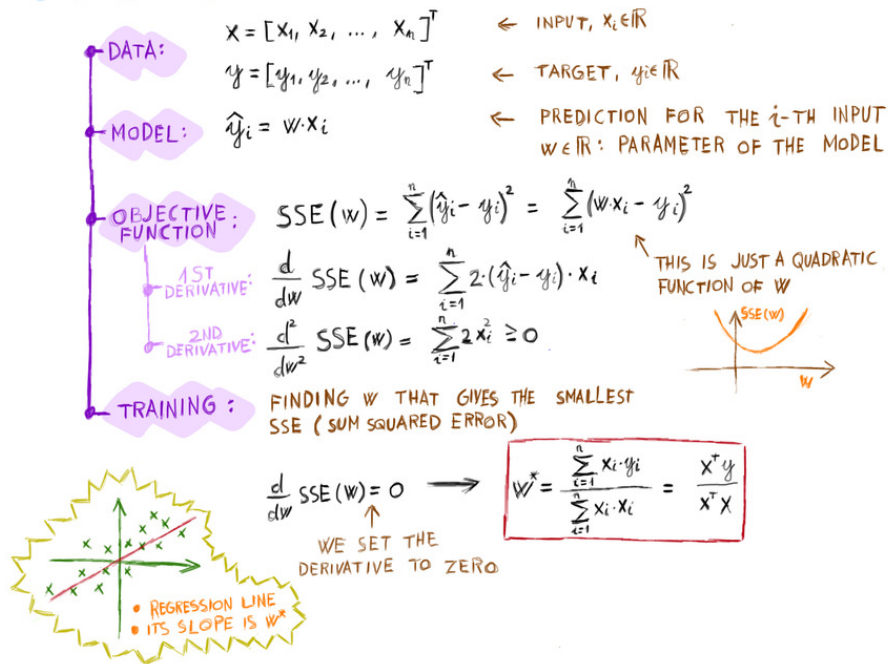 DATA: x = [x₁, x₂, ..., xₙ]ᵀ ← INPUT, xᵢ∈ℝ
y = [y₁, y₂, ..., yₙ]ᵀ ← TARGET, yᵢ∈ℝ
MODEL: ŷᵢ = w·xᵢ ← PREDICTION FOR THE i-TH INPUT
w∈ℝ: PARAMETER OF THE MODEL
OBJECTIVE FUNCTION: SSE(w) = ∑ᵢ₌₁ⁿ(ŷᵢ - yᵢ)² = ∑ᵢ₌₁ⁿ(w·xᵢ - yᵢ)²
THIS IS JUST A QUADRATIC
FUNCTION OF W
1ST DERIVATIVE: d/dw SSE(w) = ∑ᵢ₌₁ⁿ 2·(ŷᵢ - yᵢ)·xᵢ
SSE(w)
w
2ND DERIVATIVE: d²/dw² SSE(w) = ∑ᵢ₌₁ⁿ 2xᵢ² ≥ 0
TRAINING: FINDING W THAT GIVES THE SMALLEST
SSE (SUM SQUARED ERROR)
d/dw SSE(w) = 0 → w* = ∑ᵢ₌₁ⁿ xᵢ·yᵢ / ∑ᵢ₌₁ⁿ xᵢ·xᵢ = xᵀy / xᵀx
WE SET THE
DERIVATIVE TO ZERO
• REGRESSION LINE
• ITS SLOPE IS W*